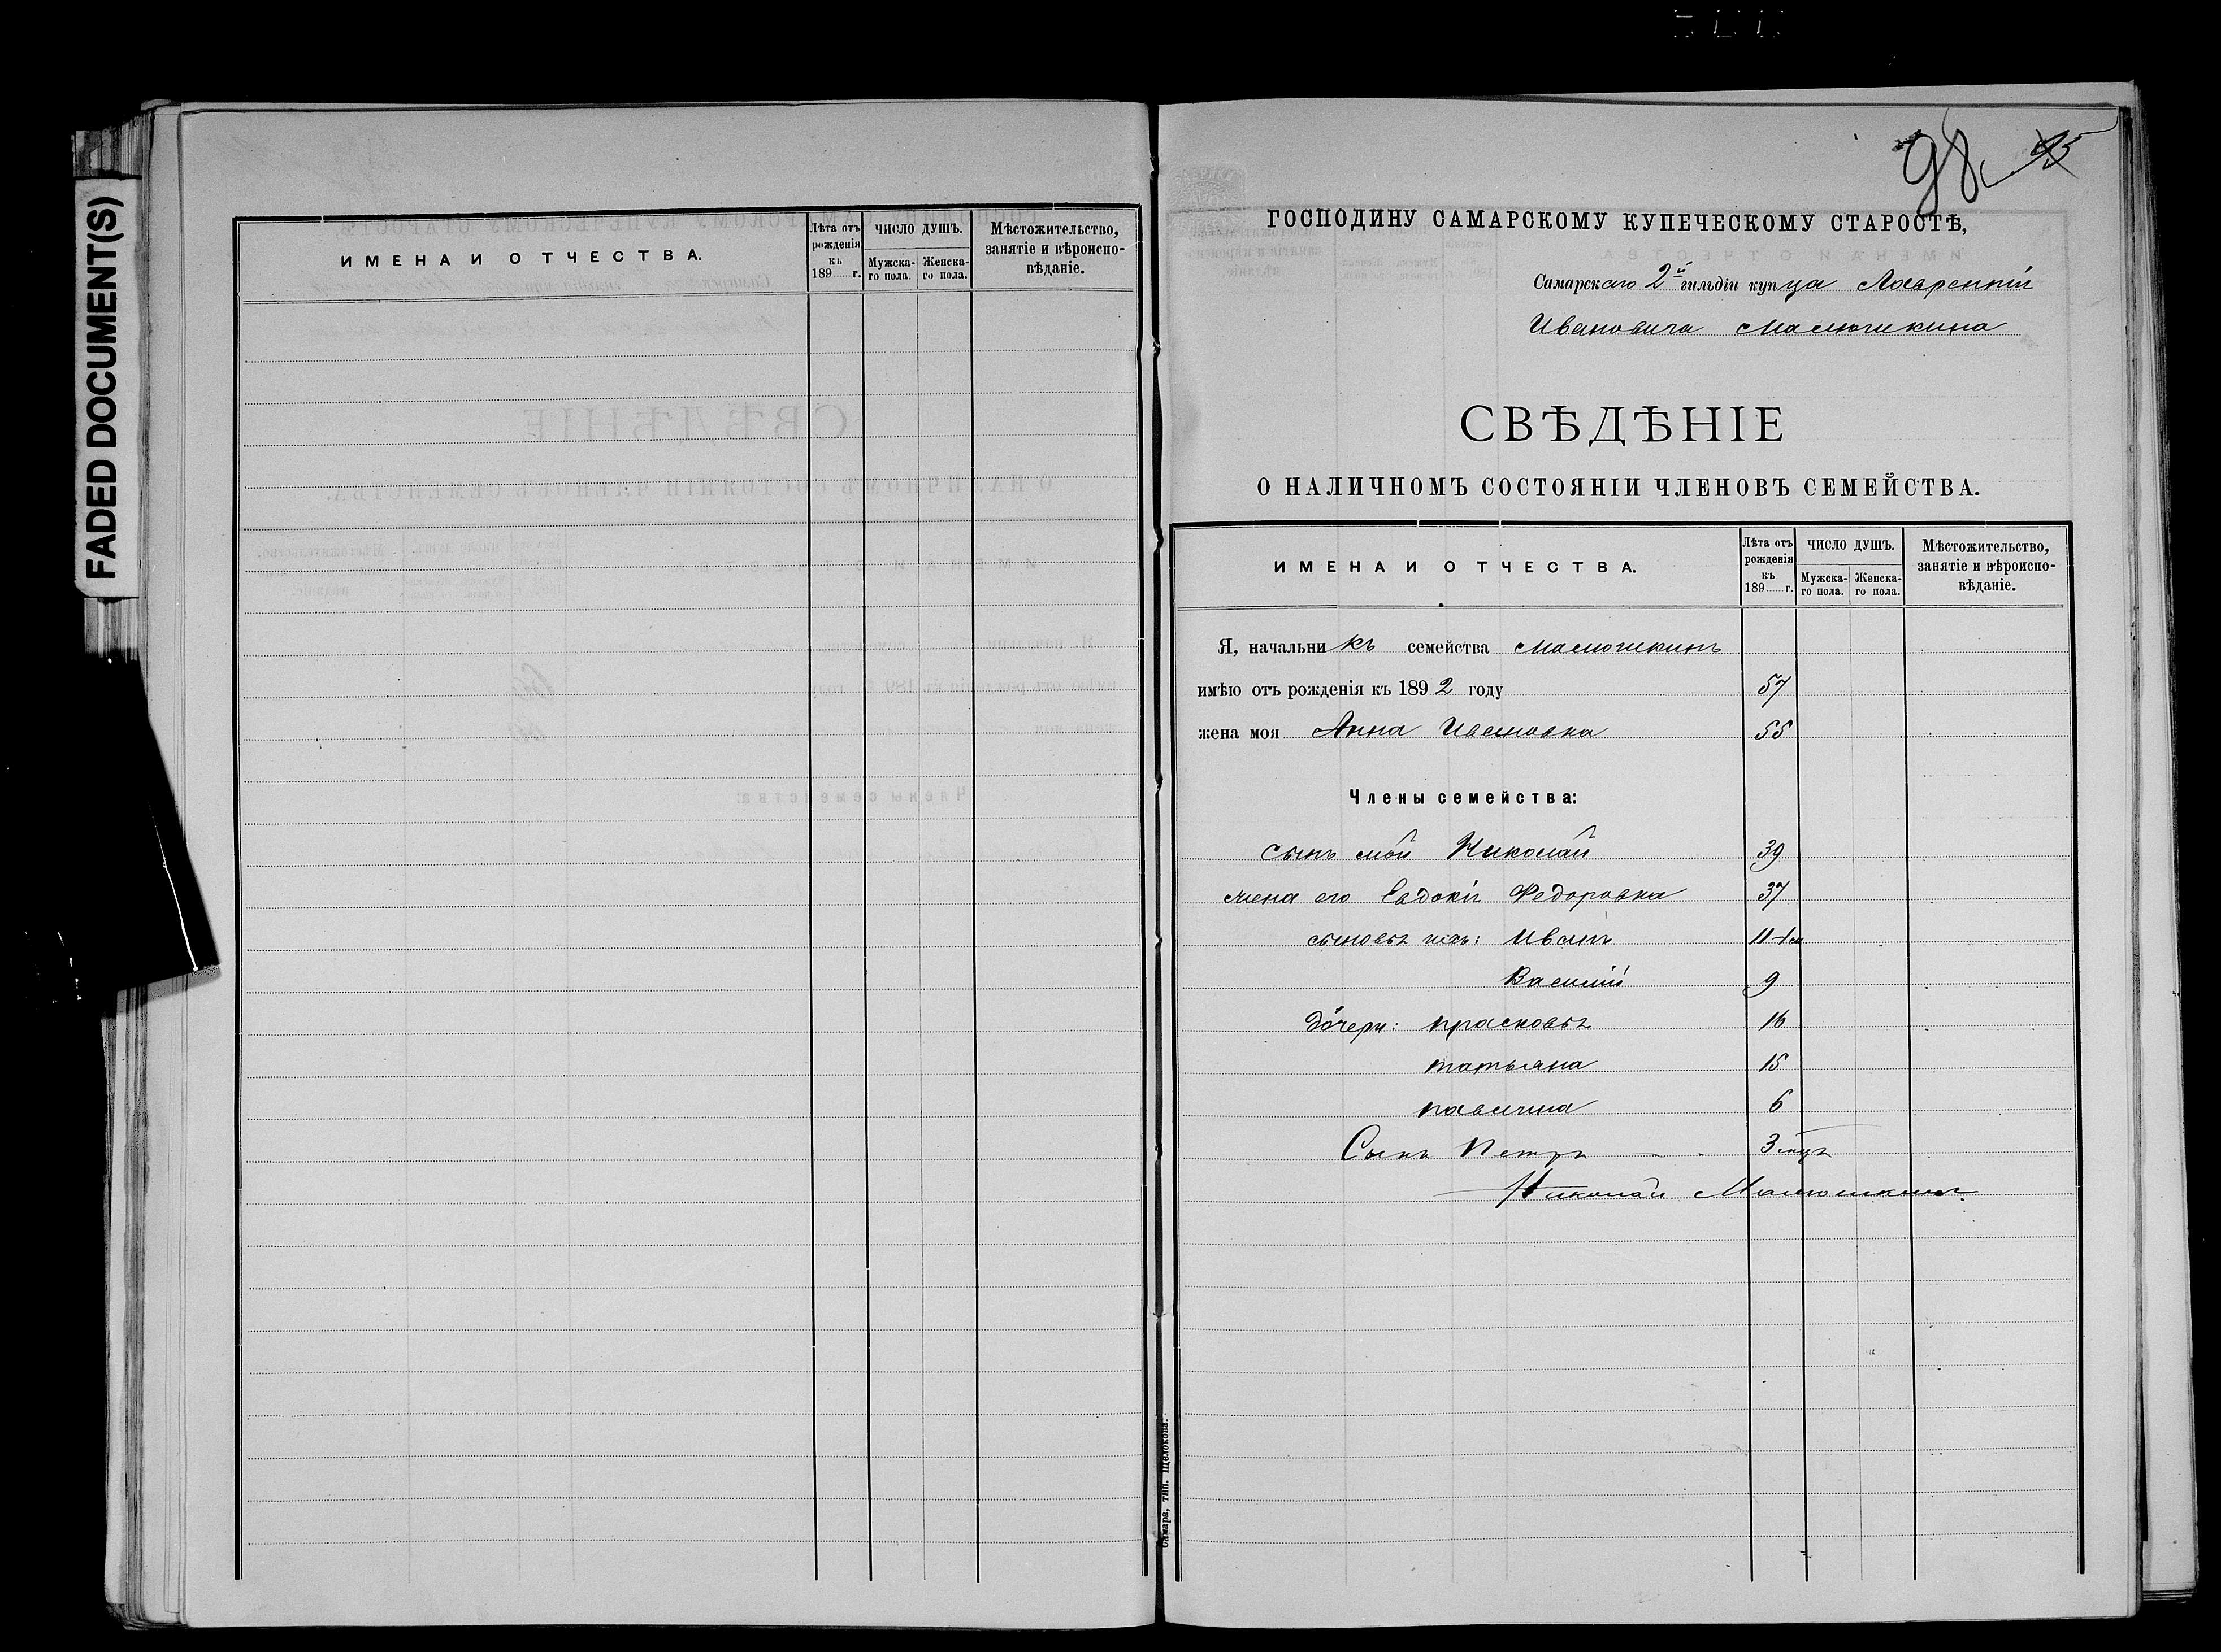 FADED DOCUMENT(S)
ИМЕНА И ОТЧЕСТВА.
Лѣта отъ рожденія къ 189 г.
ЧИСЛО ДУШЪ.
Мужска-го пола.
Женска-го пола.
Мѣстожительство, занятіе и вѣроиспо-вѣданіе.
98
ГОСПОДИНУ САМАРСКОМУ КУПЕЧЕСКОМУ СТАРОСТѢ,
Самарскаго 2й гильдіи купца
Ивановича Малюшкина
СВѢДѢНІЕ
О НАЛИЧНОМЪ СОСТОЯНІИ ЧЛЕНОВЪ СЕМЕЙСТВА.
ИМЕНА И ОТЧЕСТВА.
Лѣта отъ рожденія къ 189 г.
ЧИСЛО ДУШЪ.
Мужска-го пола.
Женска-го пола.
Мѣстожительство, занятіе и вѣроиспо-вѣданіе.
Я, начальникъ семейства Малюшкинъ
имѣю отъ рожденія къ 1892 году 57
жена моя Анна Ивановна 55
Члены семейства:
сынъ мой Николай 39
жена его Евдокія Федоровна 37
сыновья ихъ: Иванъ 11
Василій 9
дочери: Прасковья 16
Татьяна 15
6
Сынъ Петръ 3 мца
Николай Малюшкинъ
Самара, тип. Щелокова.